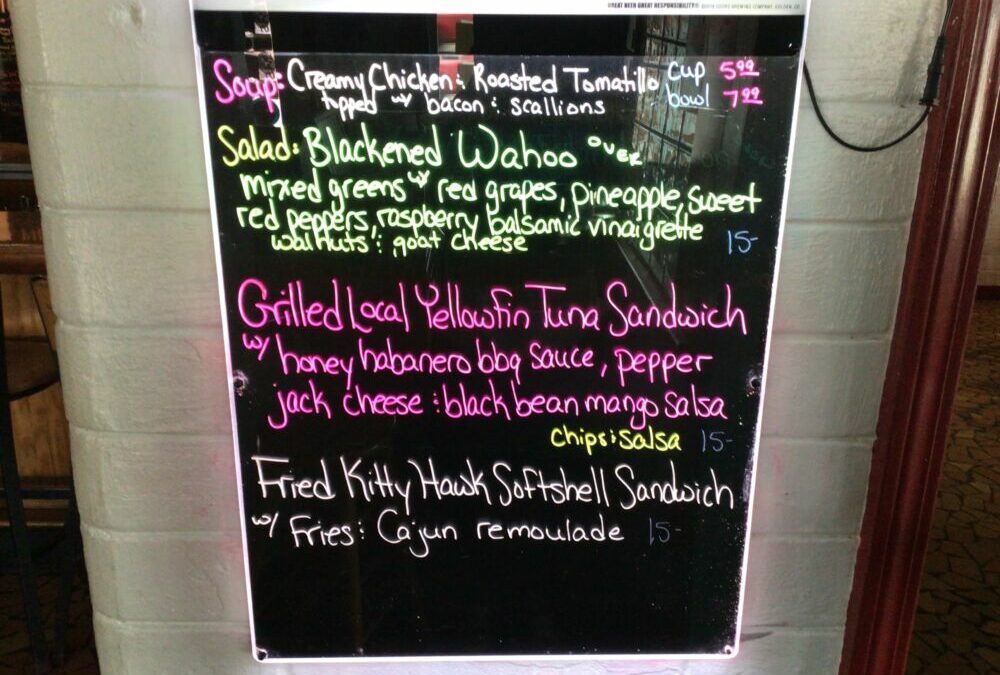 GREAT BEER GREAT RESPONSIBILITY®
Soup: Creamy Chicken & Roasted Tomatillo cup 5.99
topped w/ bacon & scallions bowl 7.99
Salad: Blackened Wahoo over
mixed greens w/ red grapes, pineapple, sweet
red peppers, raspberry balsamic vinaigrette
walnuts & goat cheese 15-
Grilled Local Yellowfin Tuna Sandwich
w/ honey habanero bbq sauce, pepper
jack cheese & black bean mango salsa
chips & salsa 15-
Fried Kitty Hawk Softshell Sandwich
w/ Fries & Cajun remoulade 15-